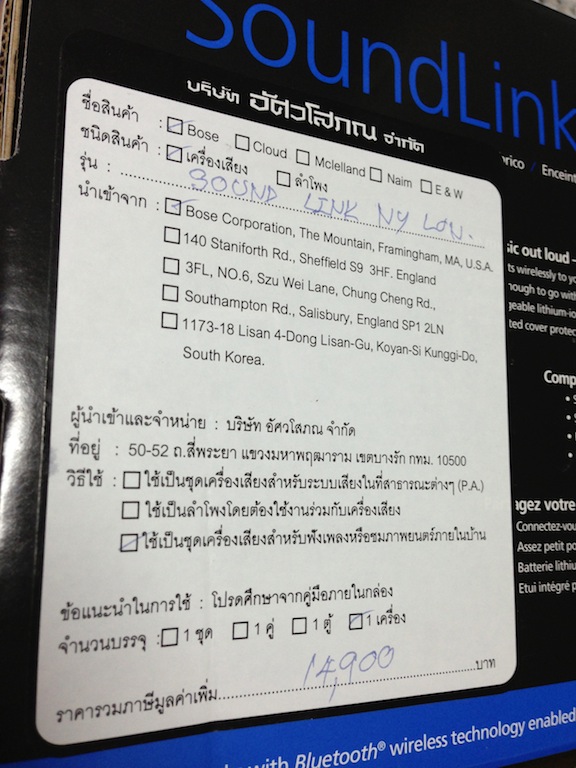 SoundLink
บริษัท อัศวโสภณ จำกัด
ชื่อสินค้า : Bose Cloud Mclelland Naim E & W
ชนิดสินค้า : เครื่องเสียง ลำโพง
รุ่น : SOUND LINK NY LON.
นำเข้าจาก : Bose Corporation, The Mountain, Framingham, MA, U.S.A.
140 Staniforth Rd., Sheffield S9 3HF. England
3FL, NO.6, Szu Wei Lane, Chung Cheng Rd.,
Southampton Rd., Salisbury, England SP1 2LN
1173-18 Lisan 4-Dong Lisan-Gu, Koyan-Si Kunggi-Do,
South Korea.
ผู้นำเข้าและจำหน่าย : บริษัท อัศวโสภณ จำกัด
ที่อยู่ : 50-52 ถ.สี่พระยา แขวงมหาพฤฒาราม เขตบางรัก กทม. 10500
วิธีใช้ : ใช้เป็นชุดเครื่องเสียงสำหรับระบบเสียงในที่สาธารณะต่างๆ (P.A.)
ใช้เป็นลำโพงโดยต้องใช้งานร่วมกับเครื่องเสียง
ใช้เป็นชุดเครื่องเสียงสำหรับฟังเพลงหรือชมภาพยนตร์ภายในบ้าน
ข้อแนะนำในการใช้ : โปรดศึกษาจากคู่มือภายในกล่อง
จำนวนบรรจุ : 1 ชุด 1 คู่ 1 ตู้ 1 เครื่อง
ราคารวมภาษีมูลค่าเพิ่ม 14,900 บาท
rico / Enceint
ic out loud –
ts wirelessly to yo
nough to go with
geable lithium-io
ted cover protec
Comp
agez votre
Connectez-vou
Assez petit po
Batterie lithiu
Etui intégré p
with Bluetooth® wireless technology enabled